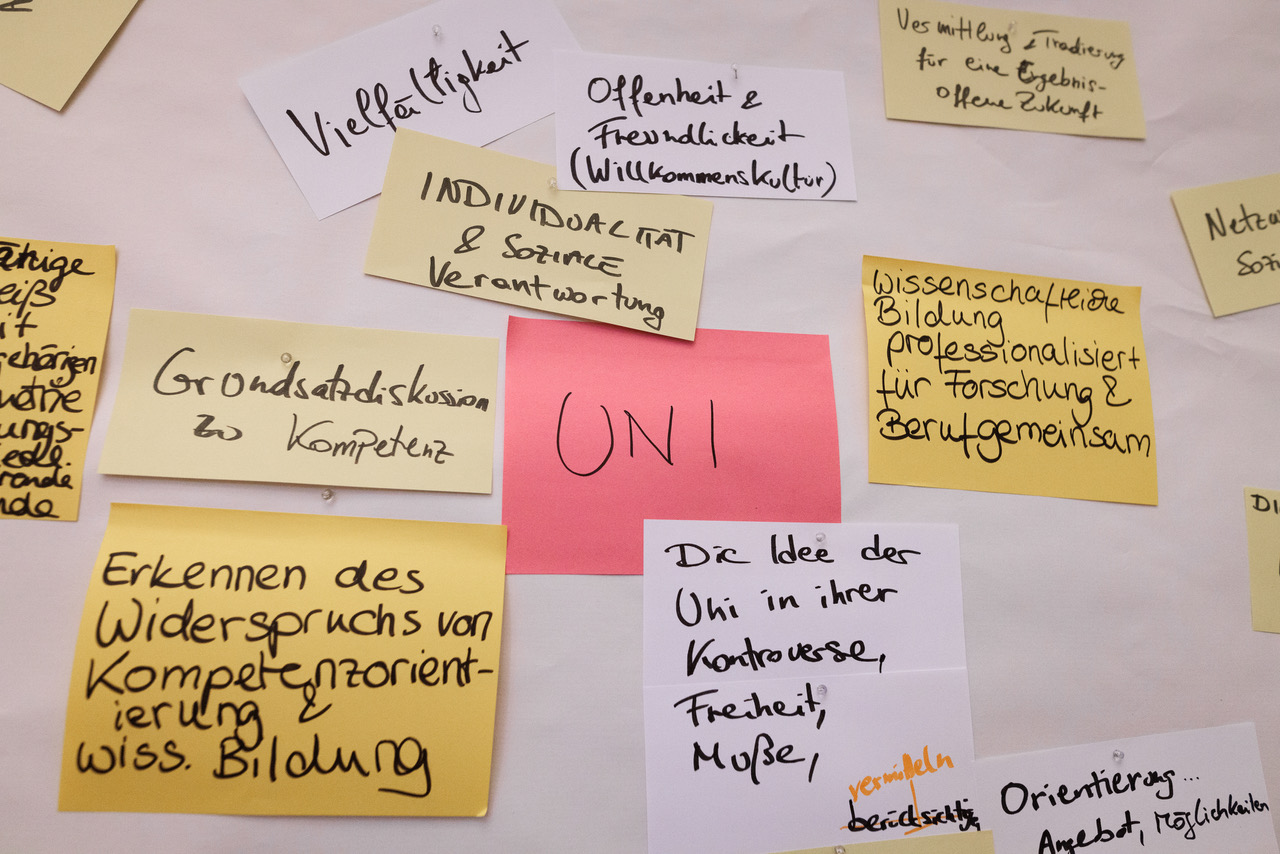 Vielfältigkeit
Offenheit &
Freundlickeit
(Willkommenskultur)
Vermittlung & Tradierung
für eine Ergebnis-
offene Zukunft
INDIVIDUALITÄT
& SOZIALE
Verantwortung
Grundsatzdiskussion
zu Kompetenz
UNI
wissenschaftliche
Bildung
professionalisiert
für Forschung &
Berufgemeinsam
Erkennen des
Widerspruchs von
Kompetenzorient-
ierung &
wiss. Bildung
Die Idee der
Uni in ihrer
Kontroverse,
Freiheit,
Muße,
vermitteln
Orientierung...
Angebot, Möglichkeiten